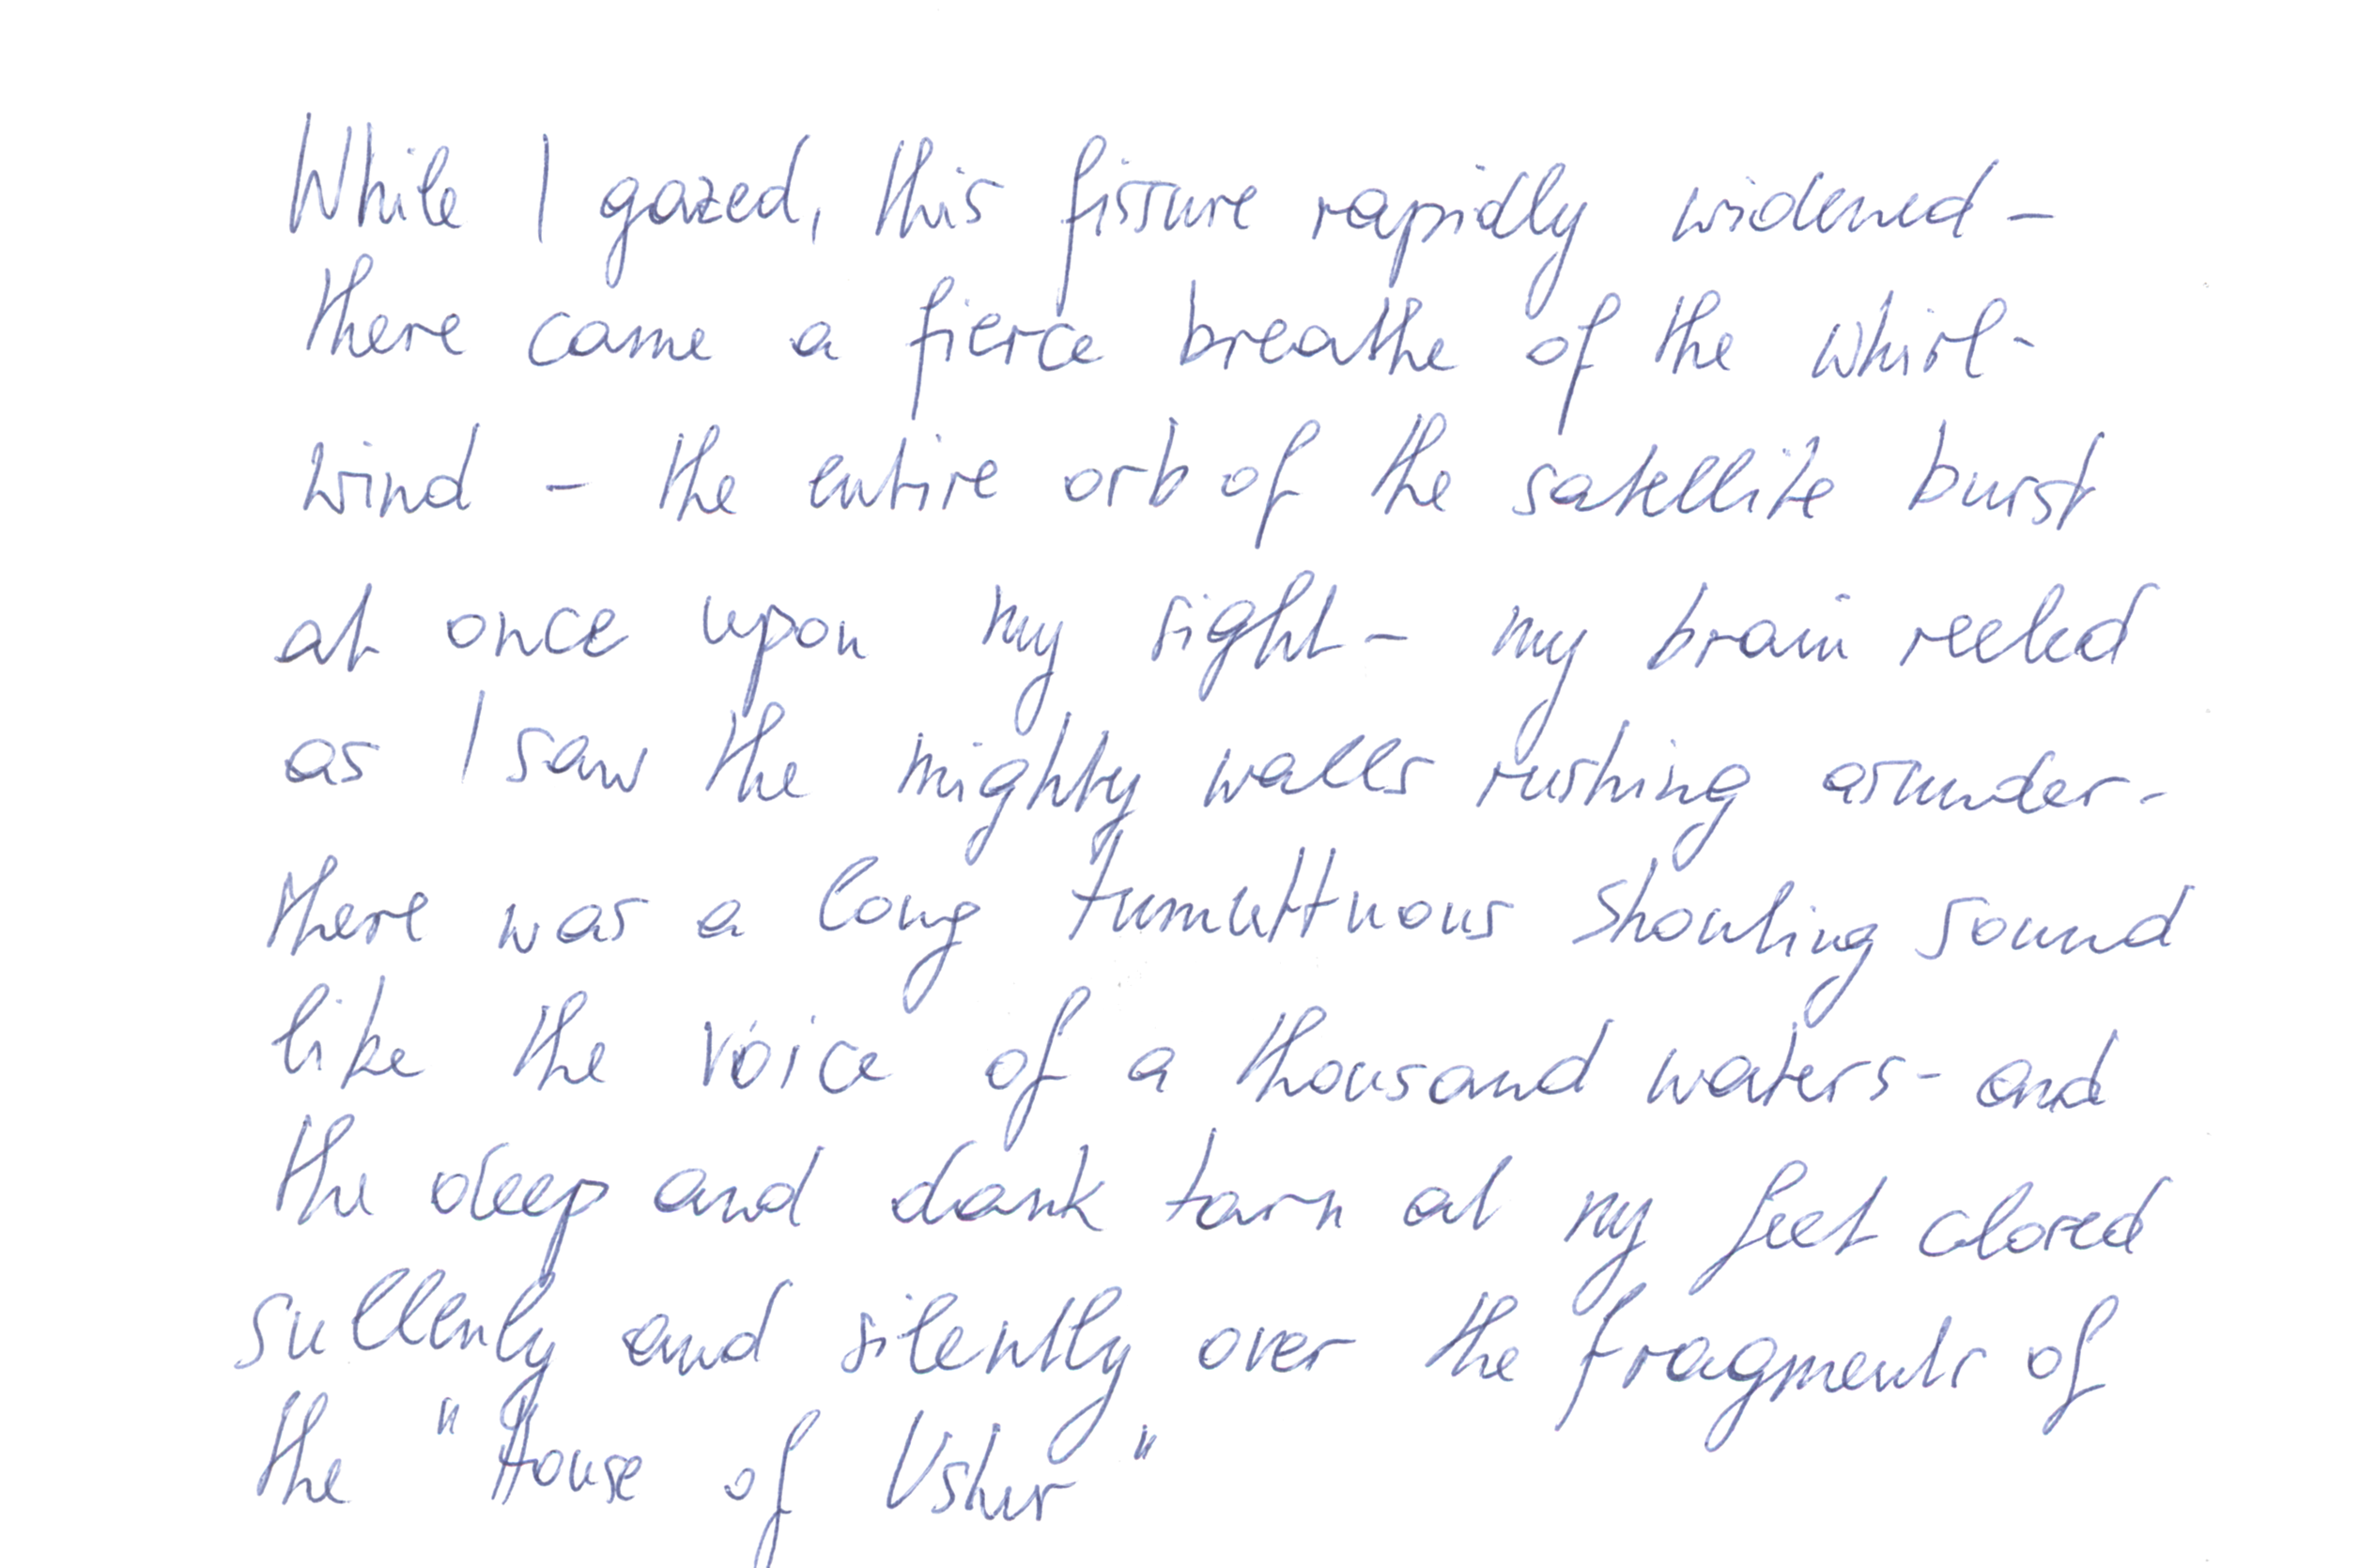 While I gazed, this fissure rapidly widened –
there came a fierce breathe of the whirl-
wind – the entire orb of the satellite burst
at once upon my sight – my brain reeled
as I saw the mighty walls rushing asunder -
there was a long tumulttuous shouting sound
like the voice of a thousand waters - and
the deep and dank tarn at my feet closed
sullenly and silently over the fragments of
the "House of Usher"